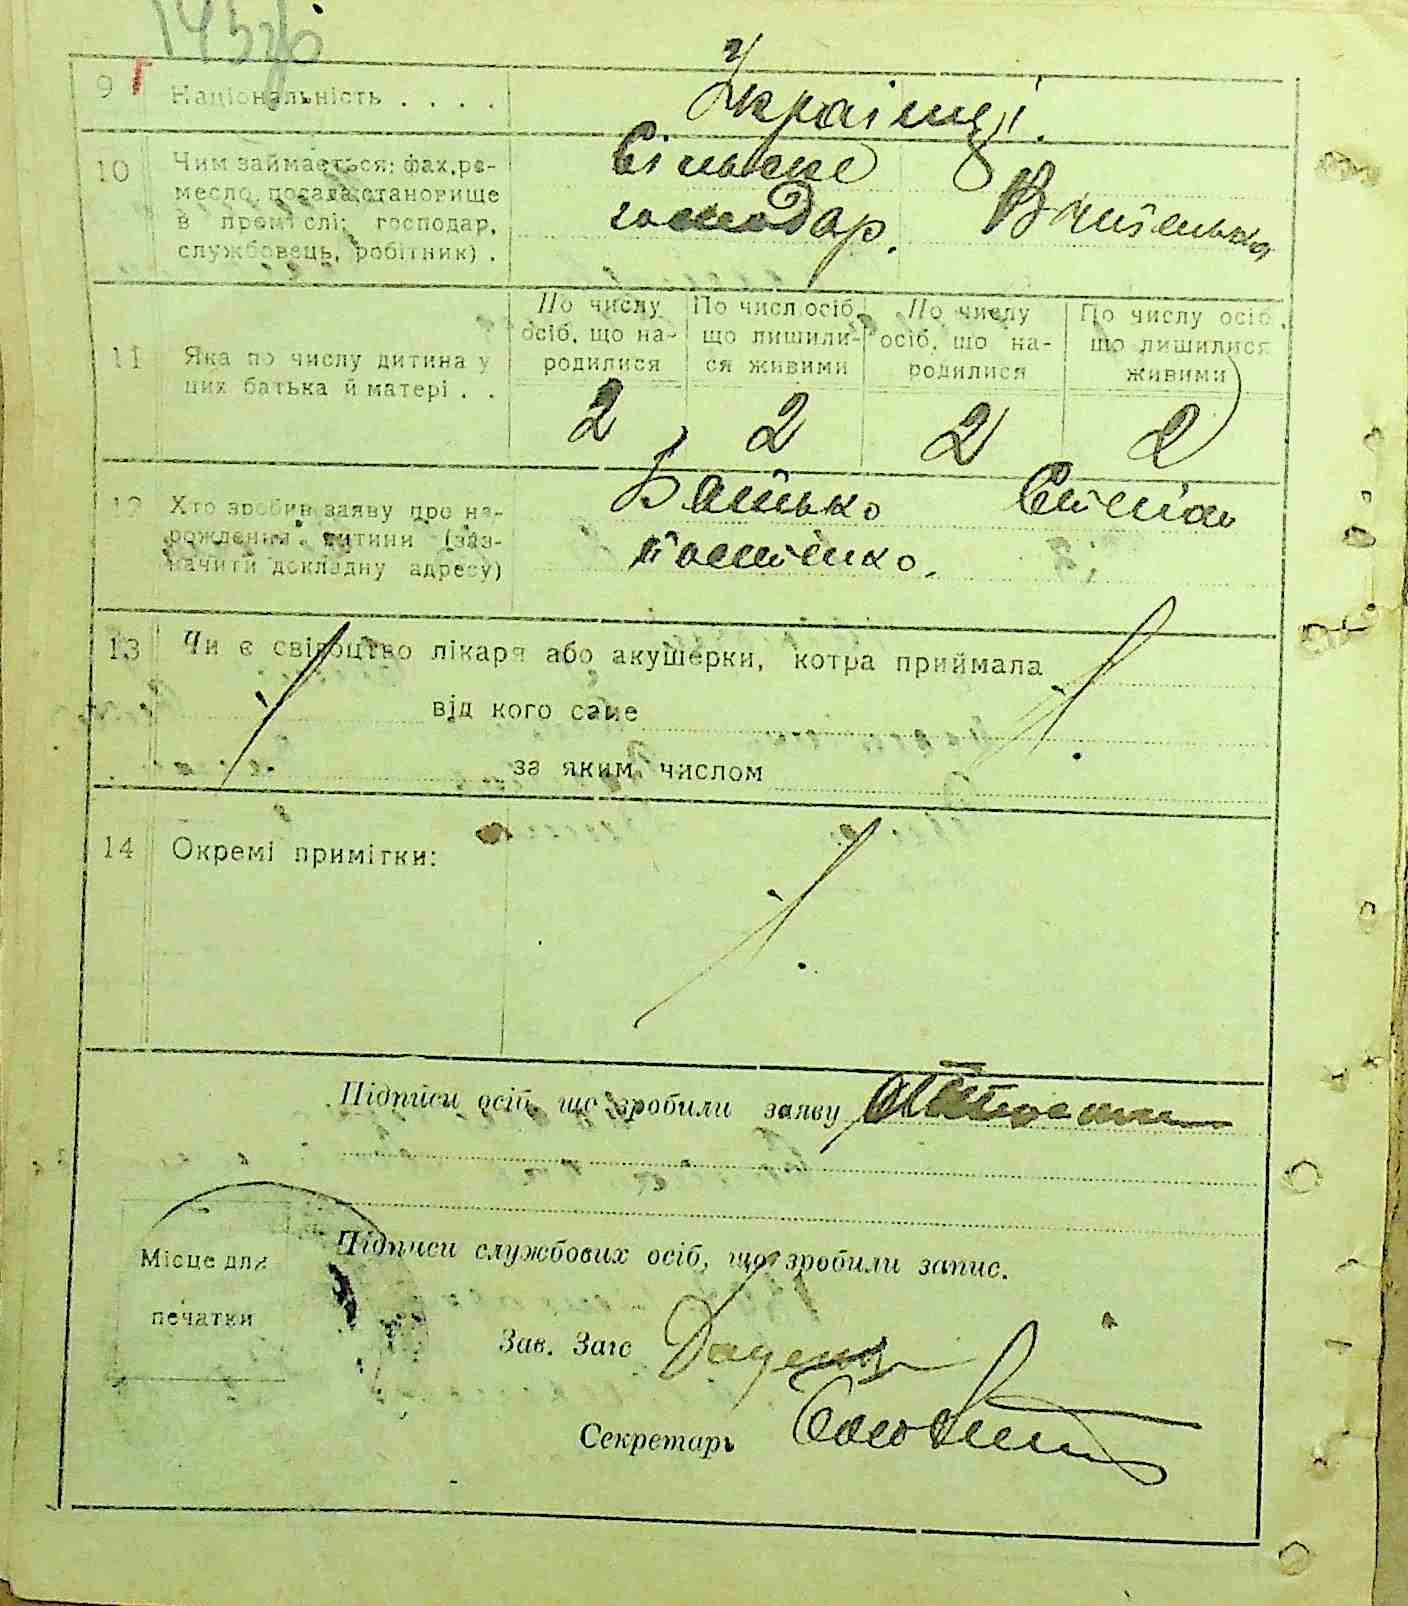 145зв
9 Національність . . . . Українці.
10 Чим займається: фах, ре-
месло, посада становище
в промислі: господар,
службовець, робітник) .
Сільське
господар. Вчителька
11 Яка по числу дитина у
цих батька й матері . .
По числу
осіб, що на-
родилися
По числ. осіб
що лишили-
ся живими
По числу
осіб, що на-
родилися
По числу осіб,
що лишилися
живими
2 2 2 2
12 Хто зробив заяву про на-
родження дитини (заз-
начити докладну адресу)
Батько Степан
13 Чи є свідоцтво лікаря або акушерки, котра приймала
від кого саме
за яким числом
14 Окремі примітки:
Підписи осіб, що зробили заяву
Підписи службових осіб, що зробили запис.
Місце для
печатки
Зав. Загс
Секретарь